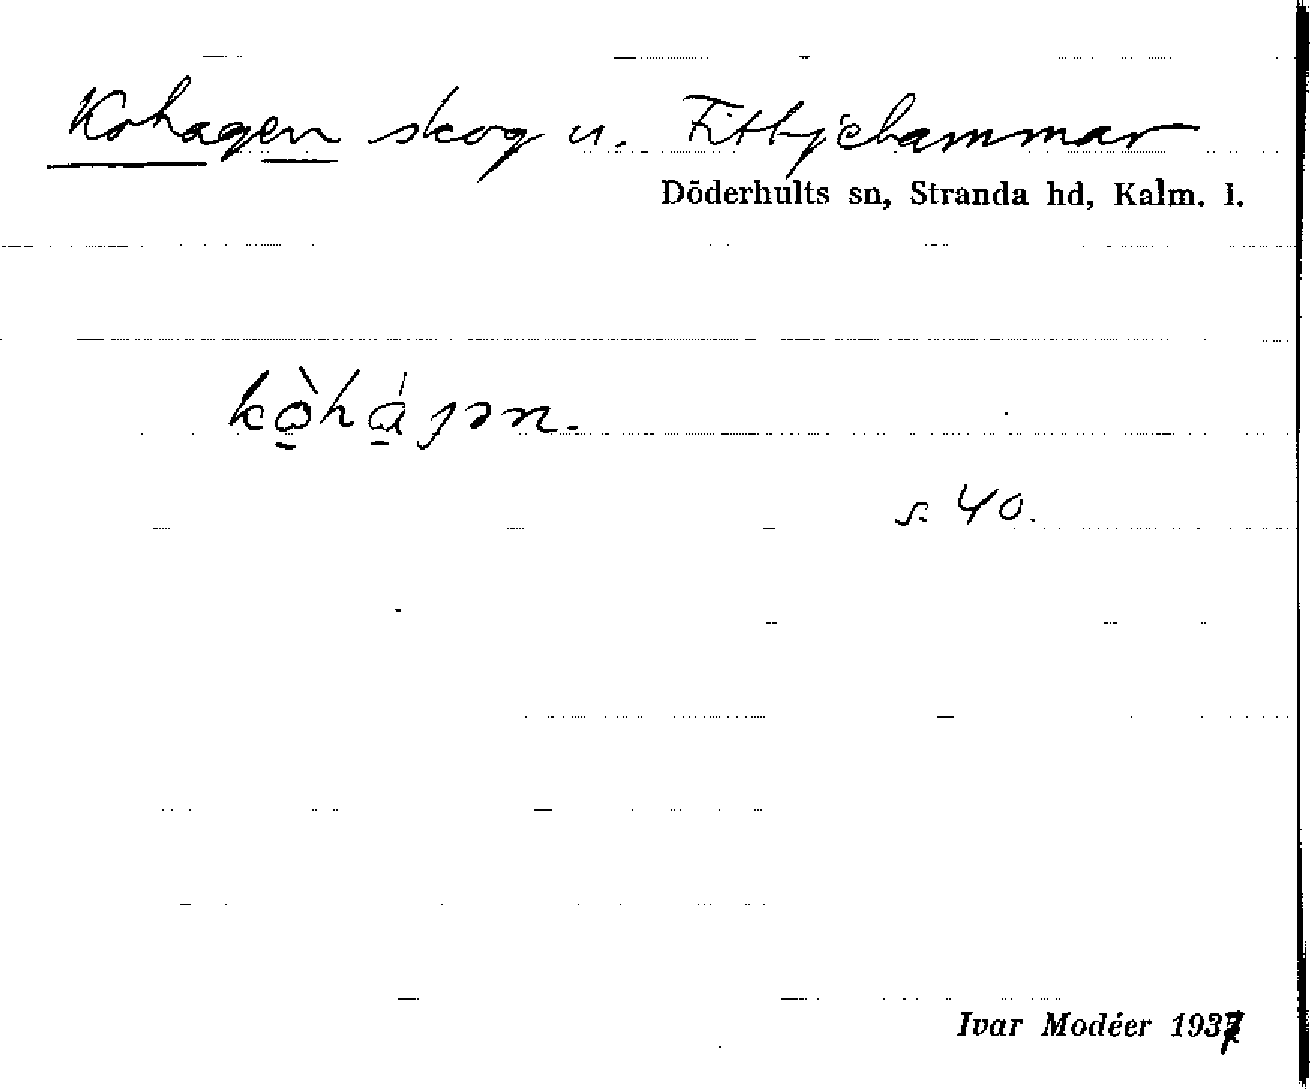 Kohagen skog u. Fitbjehammar
Döderhults sn, Stranda hd, Kalm. l.
kòhágən.
s. 40.
Ivar Modéer 1937